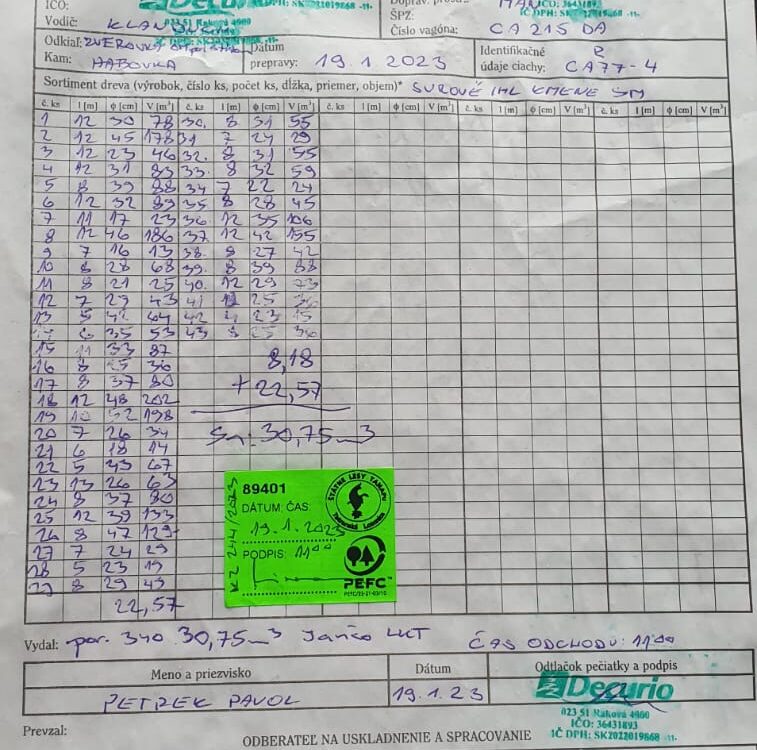 IČO:
Decurio
Doprav. prost.:
MAN
Vodič:
023 51 Raková 4900
ŠPZ:
IČO: 36431893
IČ DPH: SK2022019868 -11-
Odkiaľ: ZVEROVKA
Dátum
prepravy: 19.1.2023
Číslo vagóna: CA 215 DA
Kam: HABOVKA
Identifikačné
údaje ciachy: CA77-4
Sortiment dreva (výrobok, číslo ks, počet ks, dĺžka, priemer, objem)* SUROVÉ IHL KMENE SM
č. ks l [m] ϕ [cm] V [m³] č. ks l [m] ϕ [cm] V [m³] č. ks l [m] ϕ [cm] V [m³] č. ks l [m] ϕ [cm] V [m³]
1 12 30 78 30. 8 31 55
2 12 45 178 31 7 24 29
3 12 23 46 32. 8 31 55
4 12 31 83 33. 8 32 59
5 8 39 88 34 7 22 24
6 12 32 89 35 8 28 45
7 11 17 23 36 12 35 106
8 12 46 186 37 12 42 155
9 7 16 13 38. 8 27 42
10 8 28 68 39. 8 39 88
11 8 21 25 40. 12 29 73
12 7 29 43 41 25
13 5 42 64 42 23 15
6 35 53 43 8 25 36
15 11 33 87
16 8 25 36 8,18
17 8 37 80 + 22,57
18 12 48 202
19 10 52 198
20 7 26 34 30,75 m3
21 6 18 14
22 5 43 67
23 13 26 63
24 8 37 80
25 12 39 133
26 8 47 129
27 7 24 29
28 5 23 19
29 8 29 49
22,57
89401
DÁTUM: ČAS:
19.1.2023
PODPIS: 11⁰⁰
KZ 244/2023
ŠTÁTNE LESY TANAPU
Tatranská Lomnica
PEFC™
Vydal: por. 340 30,75 m3 Jančo LKT ČAS ODCHODU: 11⁰⁰
Meno a priezvisko Dátum Odtlačok pečiatky a podpis
PETREK PAVOL 19.1.23
Decurio
023 51 Raková 4900
IČO: 36431893
IČ DPH: SK2022019868 -11-
Prevzal:
ODBERATEĽ NA USKLADNENIE A SPRACOVANIE